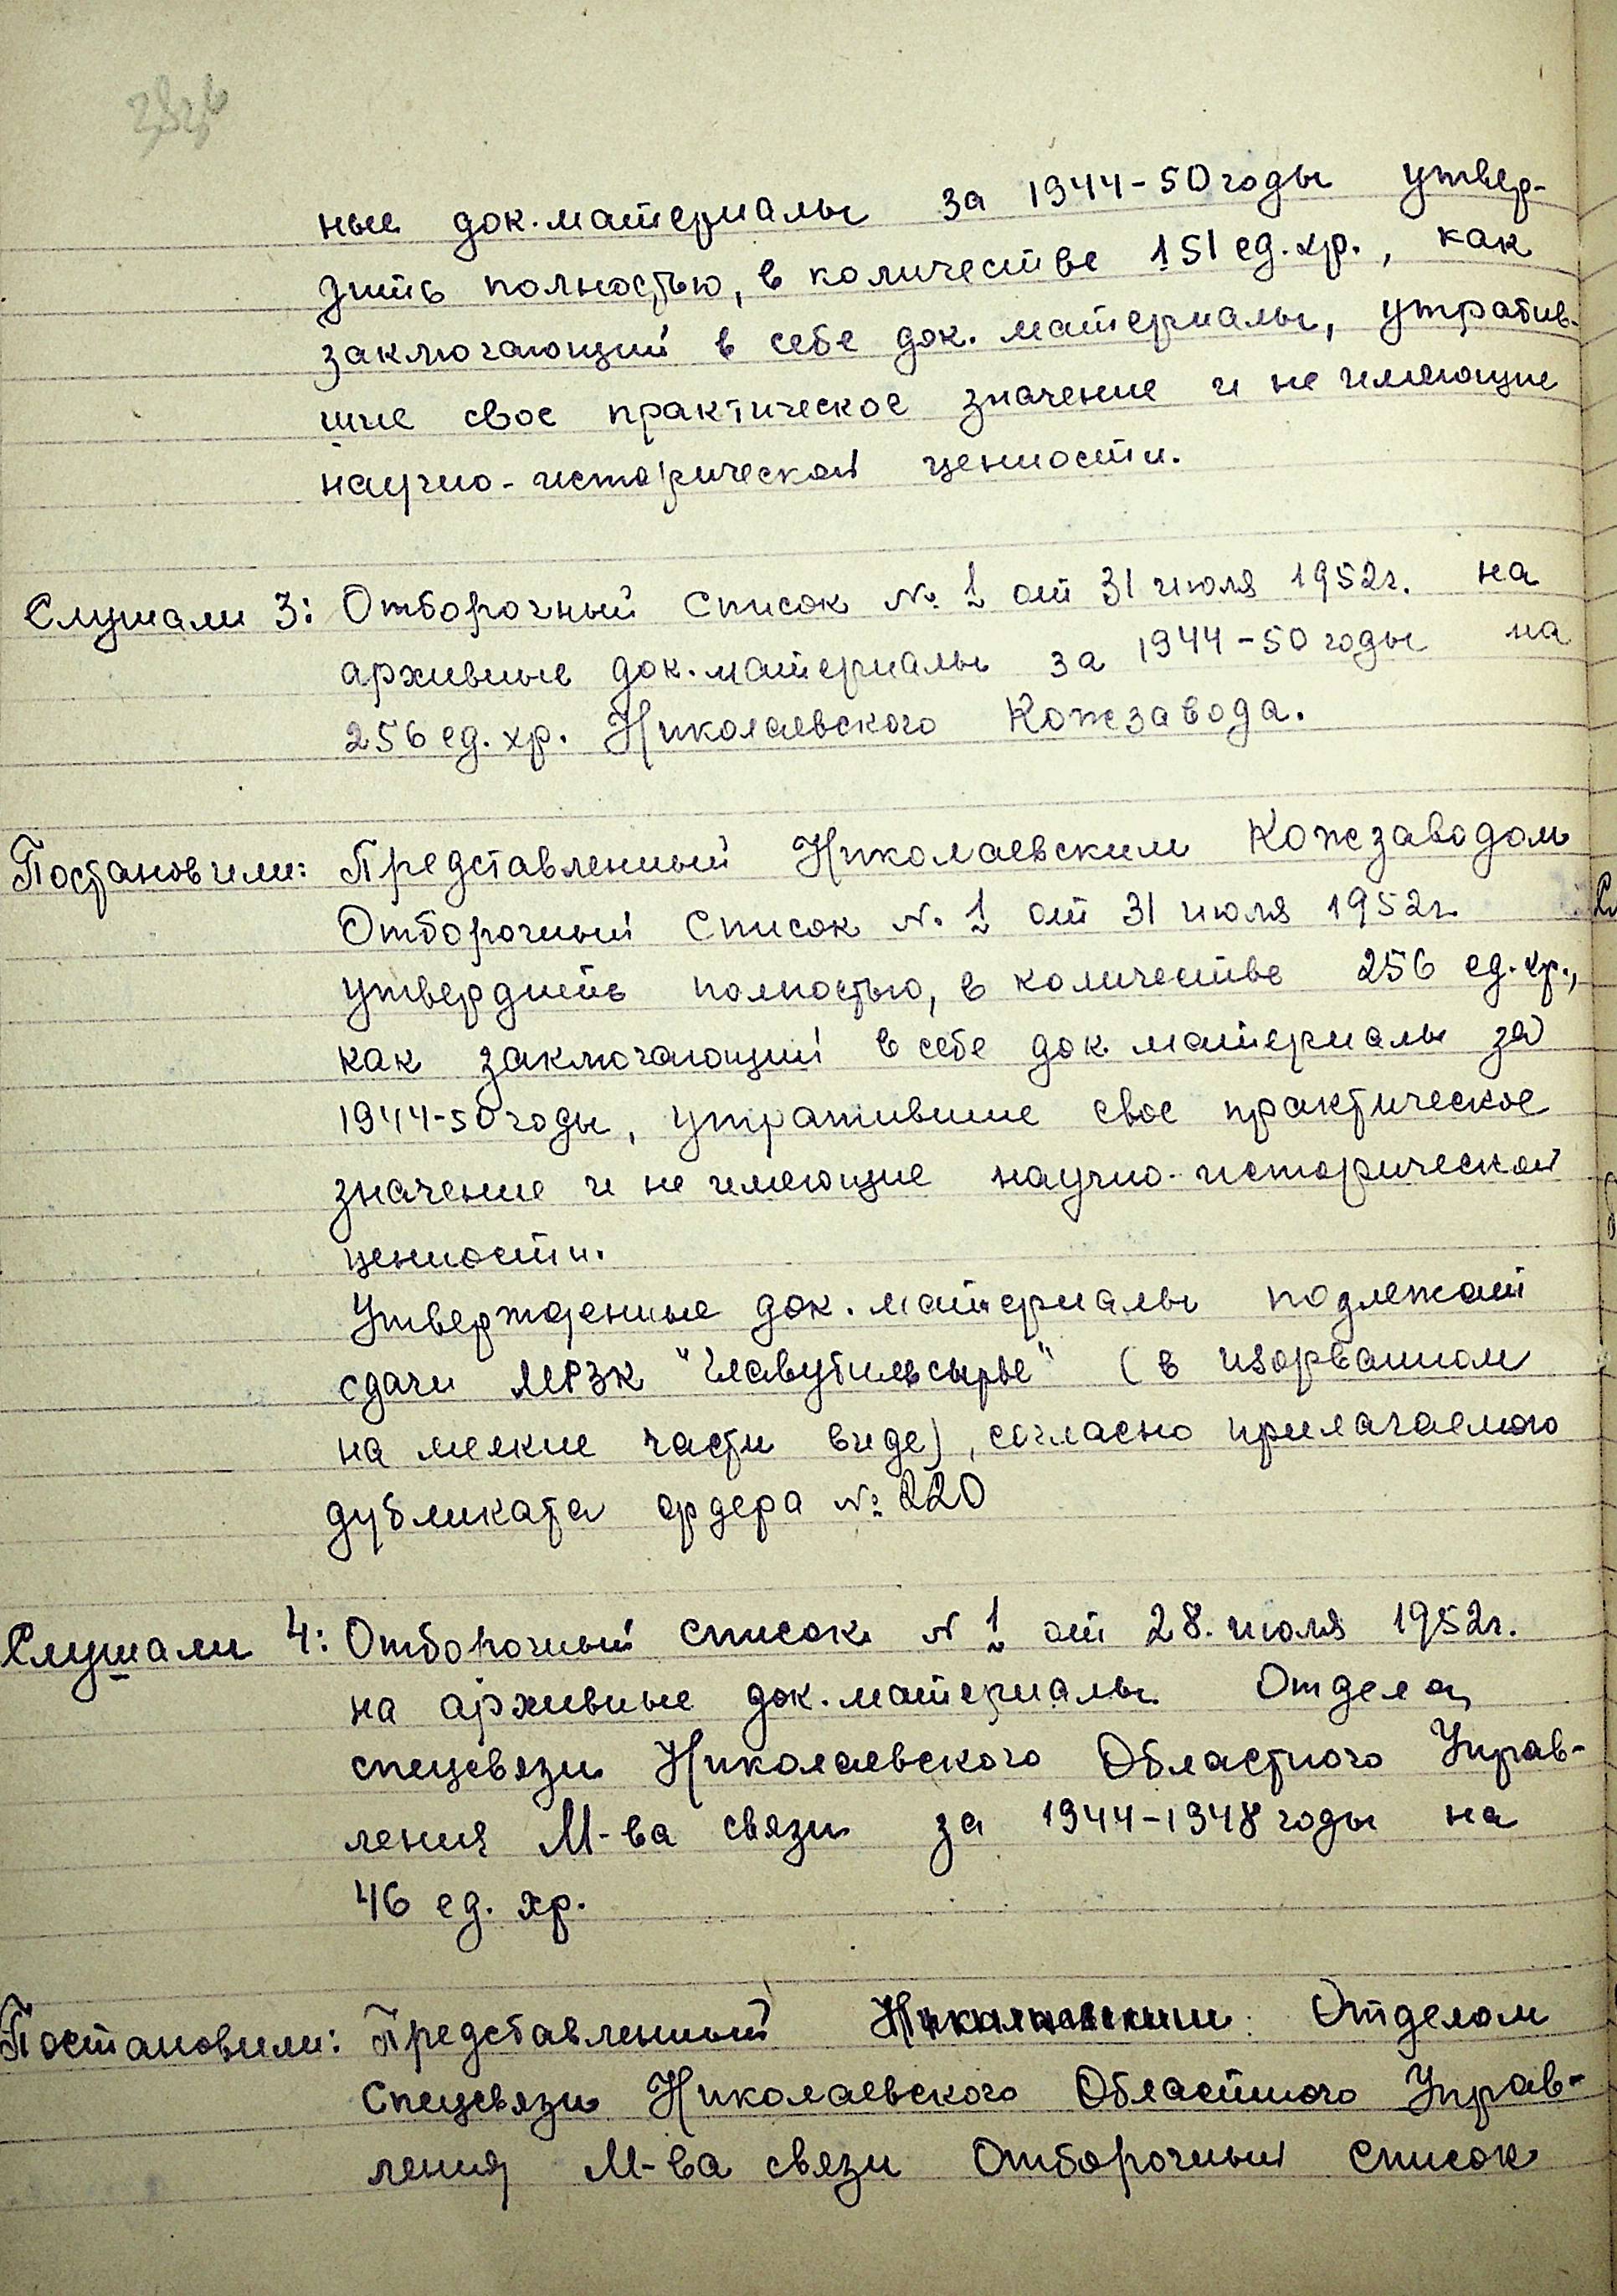 ные док. материалы за 1944-50 годы утвер-
дить полностью, в количестве 151 ед. хр., как
заключающий в себе док. материалы, утратив-
шие свое практическое значение и не имеющие
научно-исторической ценности.
Слушали 3: Отборочный список № 1 от 31 июля 1952г. на
архивные док. материалы за 1944-50 годы на
256 ед. хр. Николаевского Кожзавода.
Постановили: Представленный Николаевским Кожзаводом
Отборочный список № 1 от 31 июля 1952г.
утвердить полностью, в количестве 256 ед. хр.,
как заключающий в себе док. материалы за
1944-50 годы, утратившие свое практическое
значение и не имеющие научно-исторической
ценности.
Утвержденные док. материалы подлежат
сдачи МРЗК "Главутильсырье" (в изорванном
на мелкие части виде), согласно прилагаемого
дубликата ордера № 220
Слушали 4: Отборочный список № 1 от 28. июля 1952г.
на архивные док. материалы Отдела
спецсвязи Николаевского Областного Управ-
ления М-ва связи за 1944-1948 годы на
46 ед. хр.
Постановили: Представленный Николаевским Отделом
Спецсвязи Николаевского Областного Управ-
ления М-ва связи Отборочный список